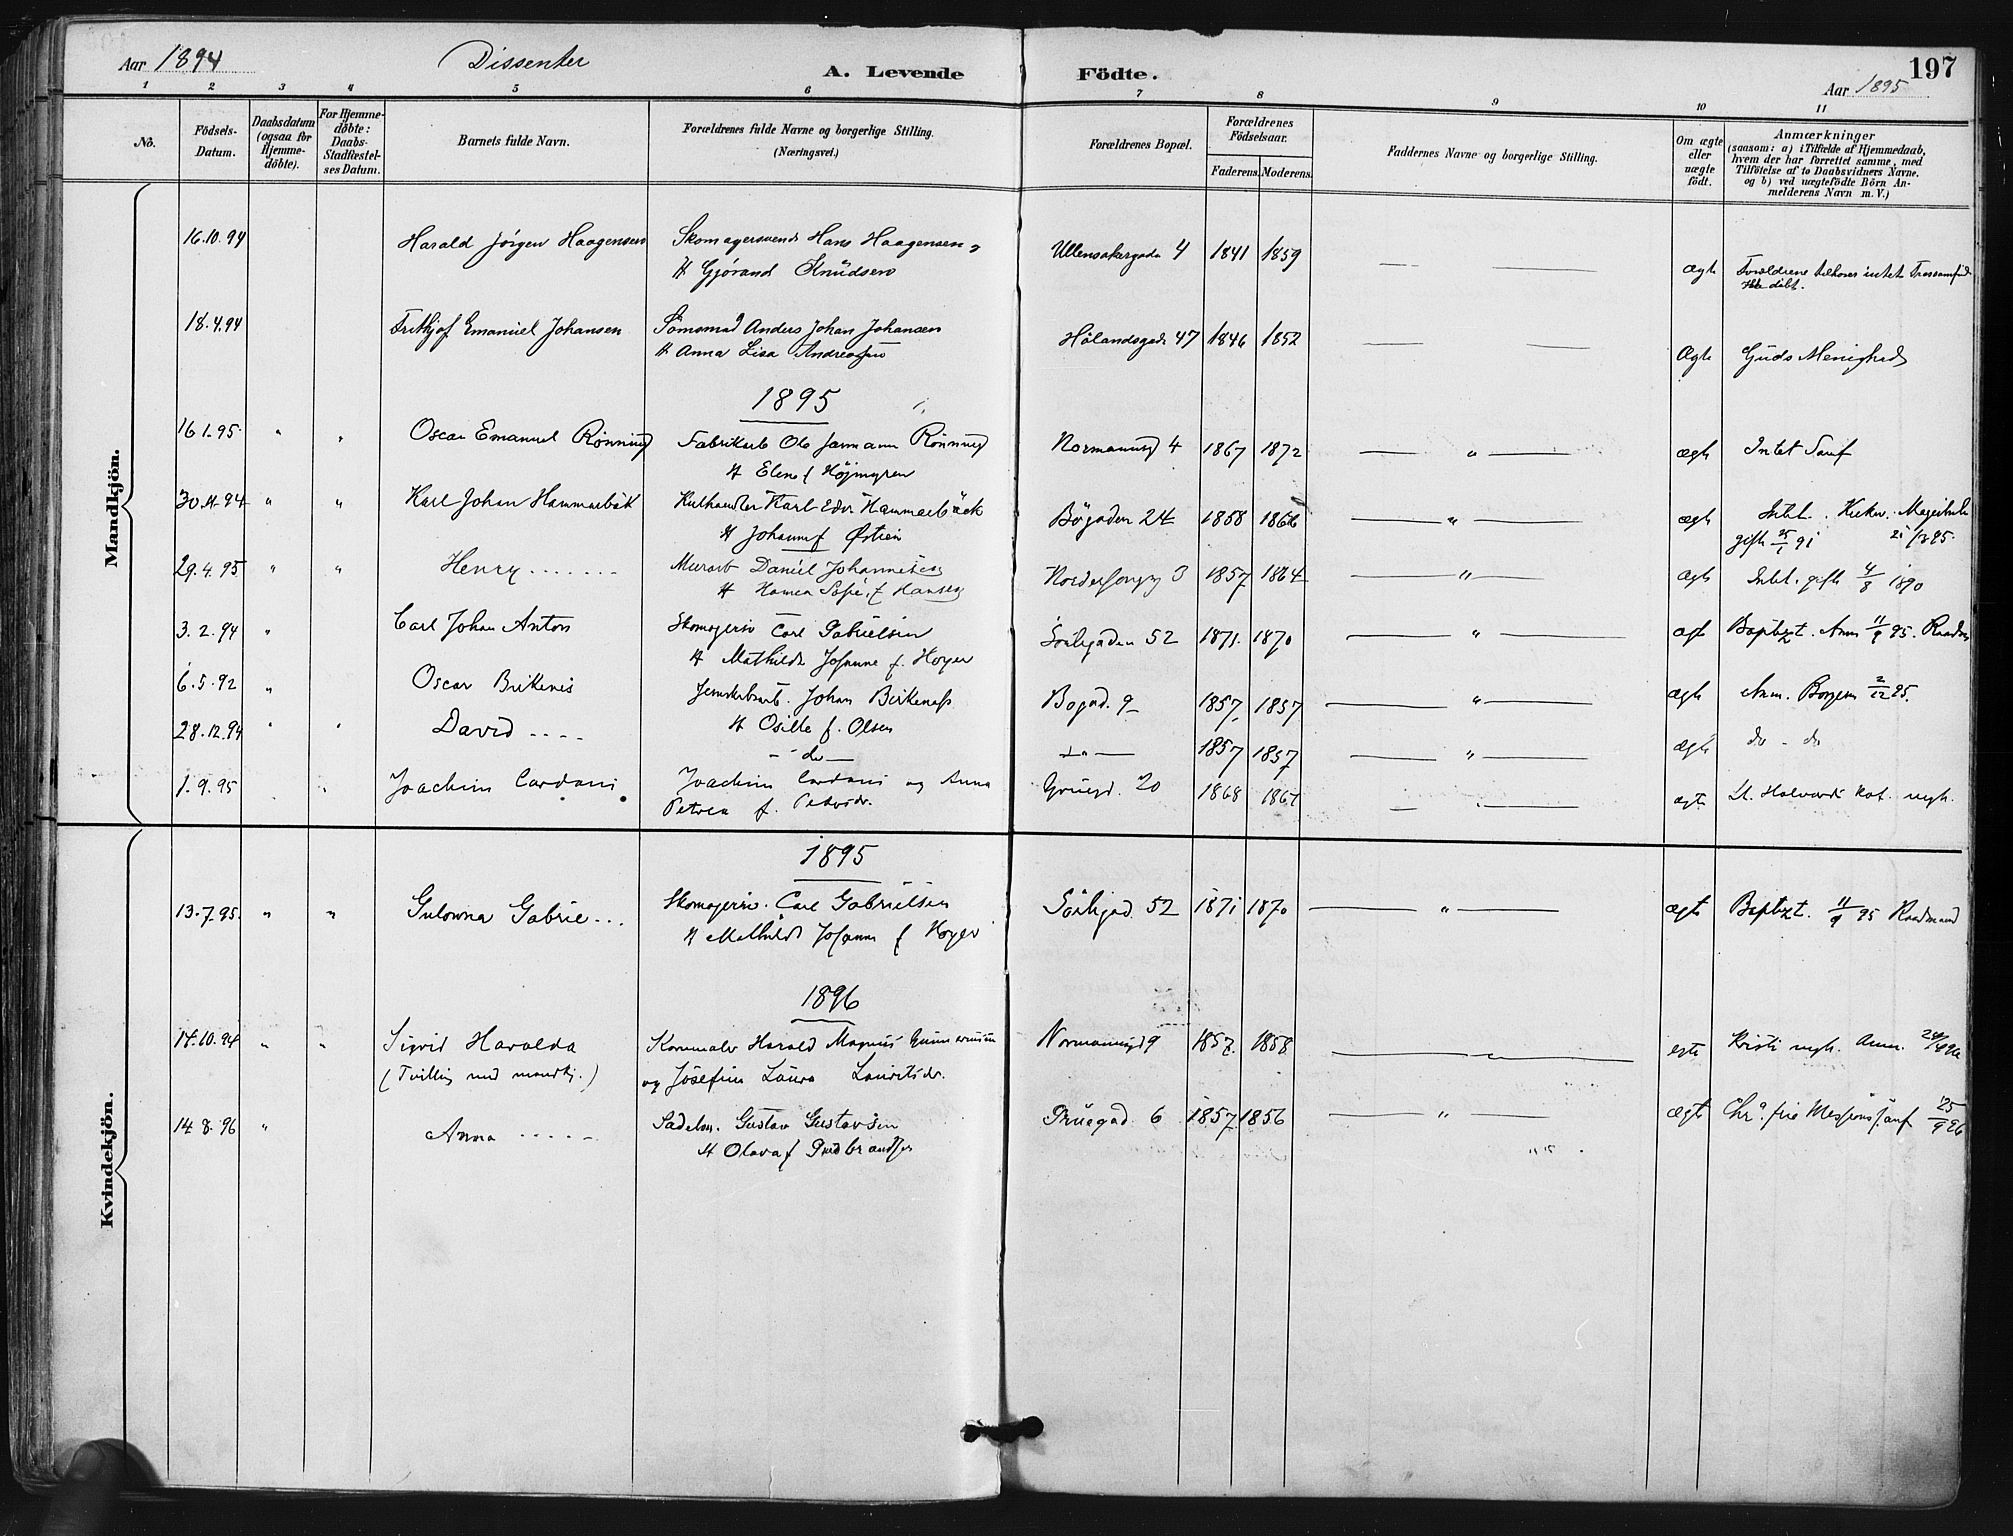 Aar 1894 Dissenter A. Levende Födte. 197
Aar 1895
1 2 3 4 5 6 7 8 9 10 11
No.
Födsels-Datum.
Daabsdatum (ogsaa for Hjemme-döbte).
For Hjemme-döbte: Daabs-Stadfæstel-ses Datum.
Barnets fulde Navn.
Forældrenes fulde Navne og borgerlige Stilling. (Næringsvei.)
Forældrenes Bopæl.
Forældrenes Födselsaar.
Faderens. Moderens.
Faddernes Navne og borgerlige Stilling.
Om ægte eller uægte födt.
Anmærkninger (saasom: a) i Tilfælde af Hjemmedaab, hvem der har forrettet samme, med Tilföielse af to Daabsvidners Navne, og b) ved uægtefödte Börn An-melderens Navn m. V.)
Mandkjön.
16.10.94 Harald Jörgen Haagensen Skomagersvend Hans Haagensen Ullensakergade 4 1841 1859 ægte Forældrene tilhører intet Trossamfund
H Gjørand Knudsen døbt.
18.4.94 Frithjof Emanuel Johansen Sömsmd Anders Johan Johansen Hølandsgade 47 1846 1852 Ægte Guds Menighed
H Anna Lisa Andreasen
1895
16.1.95 " " Oscar Emanuel Rönning Fabrikarb Ole Rönning Normannsgd 4 1867 1872 " ægte Intet Samf
H Elen f Höjmyren
30.11.94 " " Karl Johan Hammarbäk Kulhandler Karl Edv. Hammarbäck Bögaden 24 1858 1866 " ægte Intet.
H Johanne f Østien gift 25/1 91
29.4.95 " " Henry Murarb Daniel Johannesen 3 1857 1864 " ægte Intet. gift 4/8 1890
H Sofie f Hansen
3.2.94 " Carl Johan Anton Skomagersv Carl Gabrielsen Sörligaden 52 1871 1870 " ægte Baptist. Anm 11/9 95.
H Mathilde Johanne f. Hoyer
6.5.92 " Oscar Birkenes Johan Birkenæs Bogad. 9 1857 1857 " ægte Anm. Borgen 2/12 95.
H Osille f. Olsen
28.12.94 " " David - do - do 1857 1857 " ægte do - do
1.9.95 Joachim Cardani Joachim Cardani og Anna Grüegd. 20 1868 1867 ægte St. Halvards kat. mgh.
Petrea f. Petersdr.
Kvindekjön.
1895
13.7.95. " " Gulowna Gabrie... Skomagersv. Carl Gabrielsen Sörligad. 52 1871 1870 " ægte Baptist. 11/9 95 Raadmand
H Mathilde Johanne f Hoyer
1896
14.10.94 " " Sigrid Haralda Kornmaler Harald Magnus Gunnerusen Normannsgd 9 1857. 1858 egte Kristi mgh. Anm.
(Tvilling med mandkj.) og Josefine Laura Lauritsdr.
14.8.96 " Anna Sadelm. Gustav Gustavsen Grüegad. 6 1857 1856 " ægte Chra. frie Messionssamf 25/9 96
H Olava f Gudbrandsen